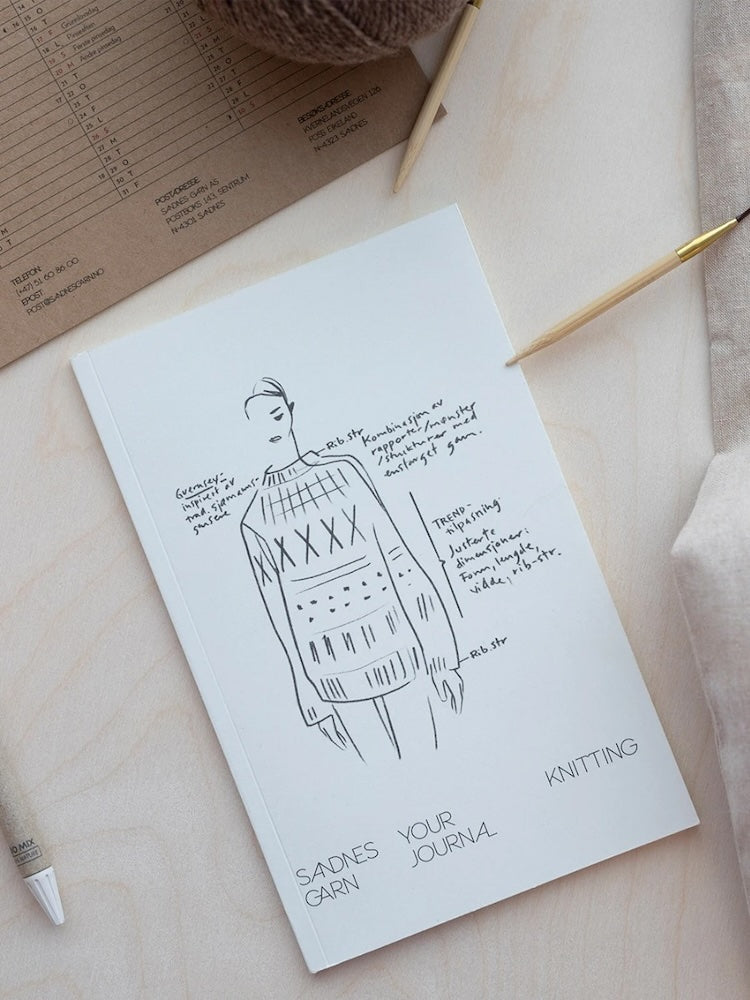 Grunnlovsdag
Pinseaften
Første pinsedag
Andre pinsedag
TELEFON:
(+47) 51 60 86 00
EPOST:
POST@SANDNESGARN.NO
POSTADRESSE:
SANDNES GARN AS
POSTBOKS 143, SENTRUM
N-4301 SANDNES
BESØKSADRESSE:
KVERNELANDSVEGEN 126
FOSS EIKELAND
N-4323 SANDNES
Rib.str
Kombinasjon av
rapporter/mønster
/strukturer med
ensfarget garn.
Guernsey-
inspirert av
trad. sjømanns-
gensere
TREND-
tilpasning
Justerte
dimensjoner:
Form, lengde,
vidde, rib-str.
Rib.str
KNITTING
YOUR
JOURNAL
SANDNES
GARN
MIX